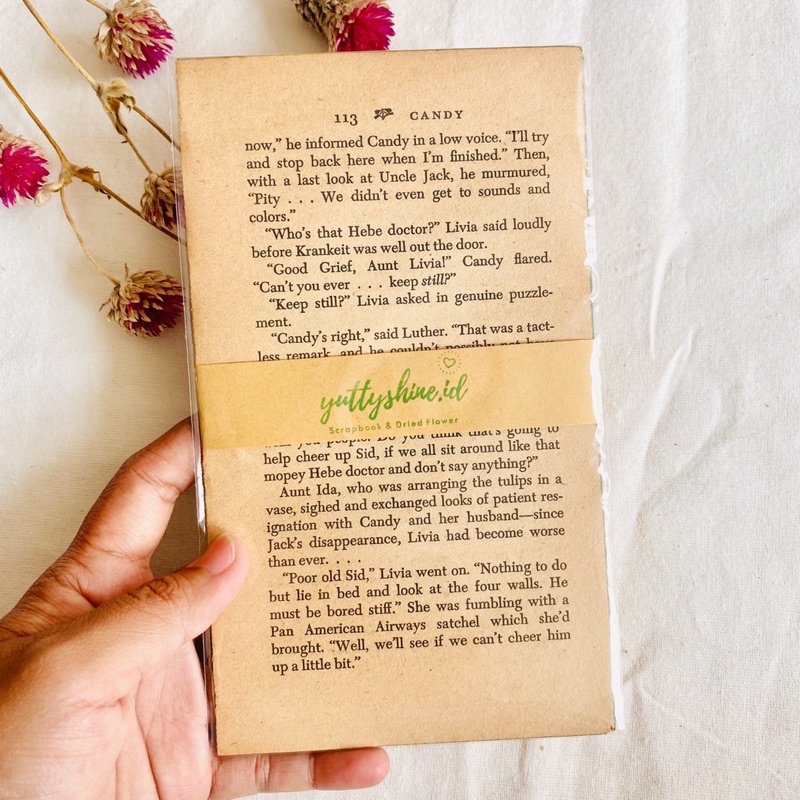 113 CANDY
now,” he informed Candy in a low voice. “I’ll try
and stop back here when I’m finished.” Then,
with a last look at Uncle Jack, he murmured,
“Pity . . . We didn’t even get to sounds and
colors.”
“Who’s that Hebe doctor?” Livia said loudly
before Krankeit was well out the door.
“Good Grief, Aunt Livia!” Candy flared.
“Can’t you ever . . . keep still?”
“Keep still?” Livia asked in genuine puzzle-
ment.
“Candy’s right,” said Luther. “That was a tact-
less remark, and he couldn’t possibly not have
yuttyshine.id
Scrapbook & Dried Flower
you people. Do you think that’s going to
help cheer up Sid, if we all sit around like that
mopey Hebe doctor and don’t say anything?”
Aunt Ida, who was arranging the tulips in a
vase, sighed and exchanged looks of patient res-
ignation with Candy and her husband—since
Jack’s disappearance, Livia had become worse
than ever. . . .
“Poor old Sid,” Livia went on. “Nothing to do
but lie in bed and look at the four walls. He
must be bored stiff.” She was fumbling with a
Pan American Airways satchel which she’d
brought. “Well, we’ll see if we can’t cheer him
up a little bit.”